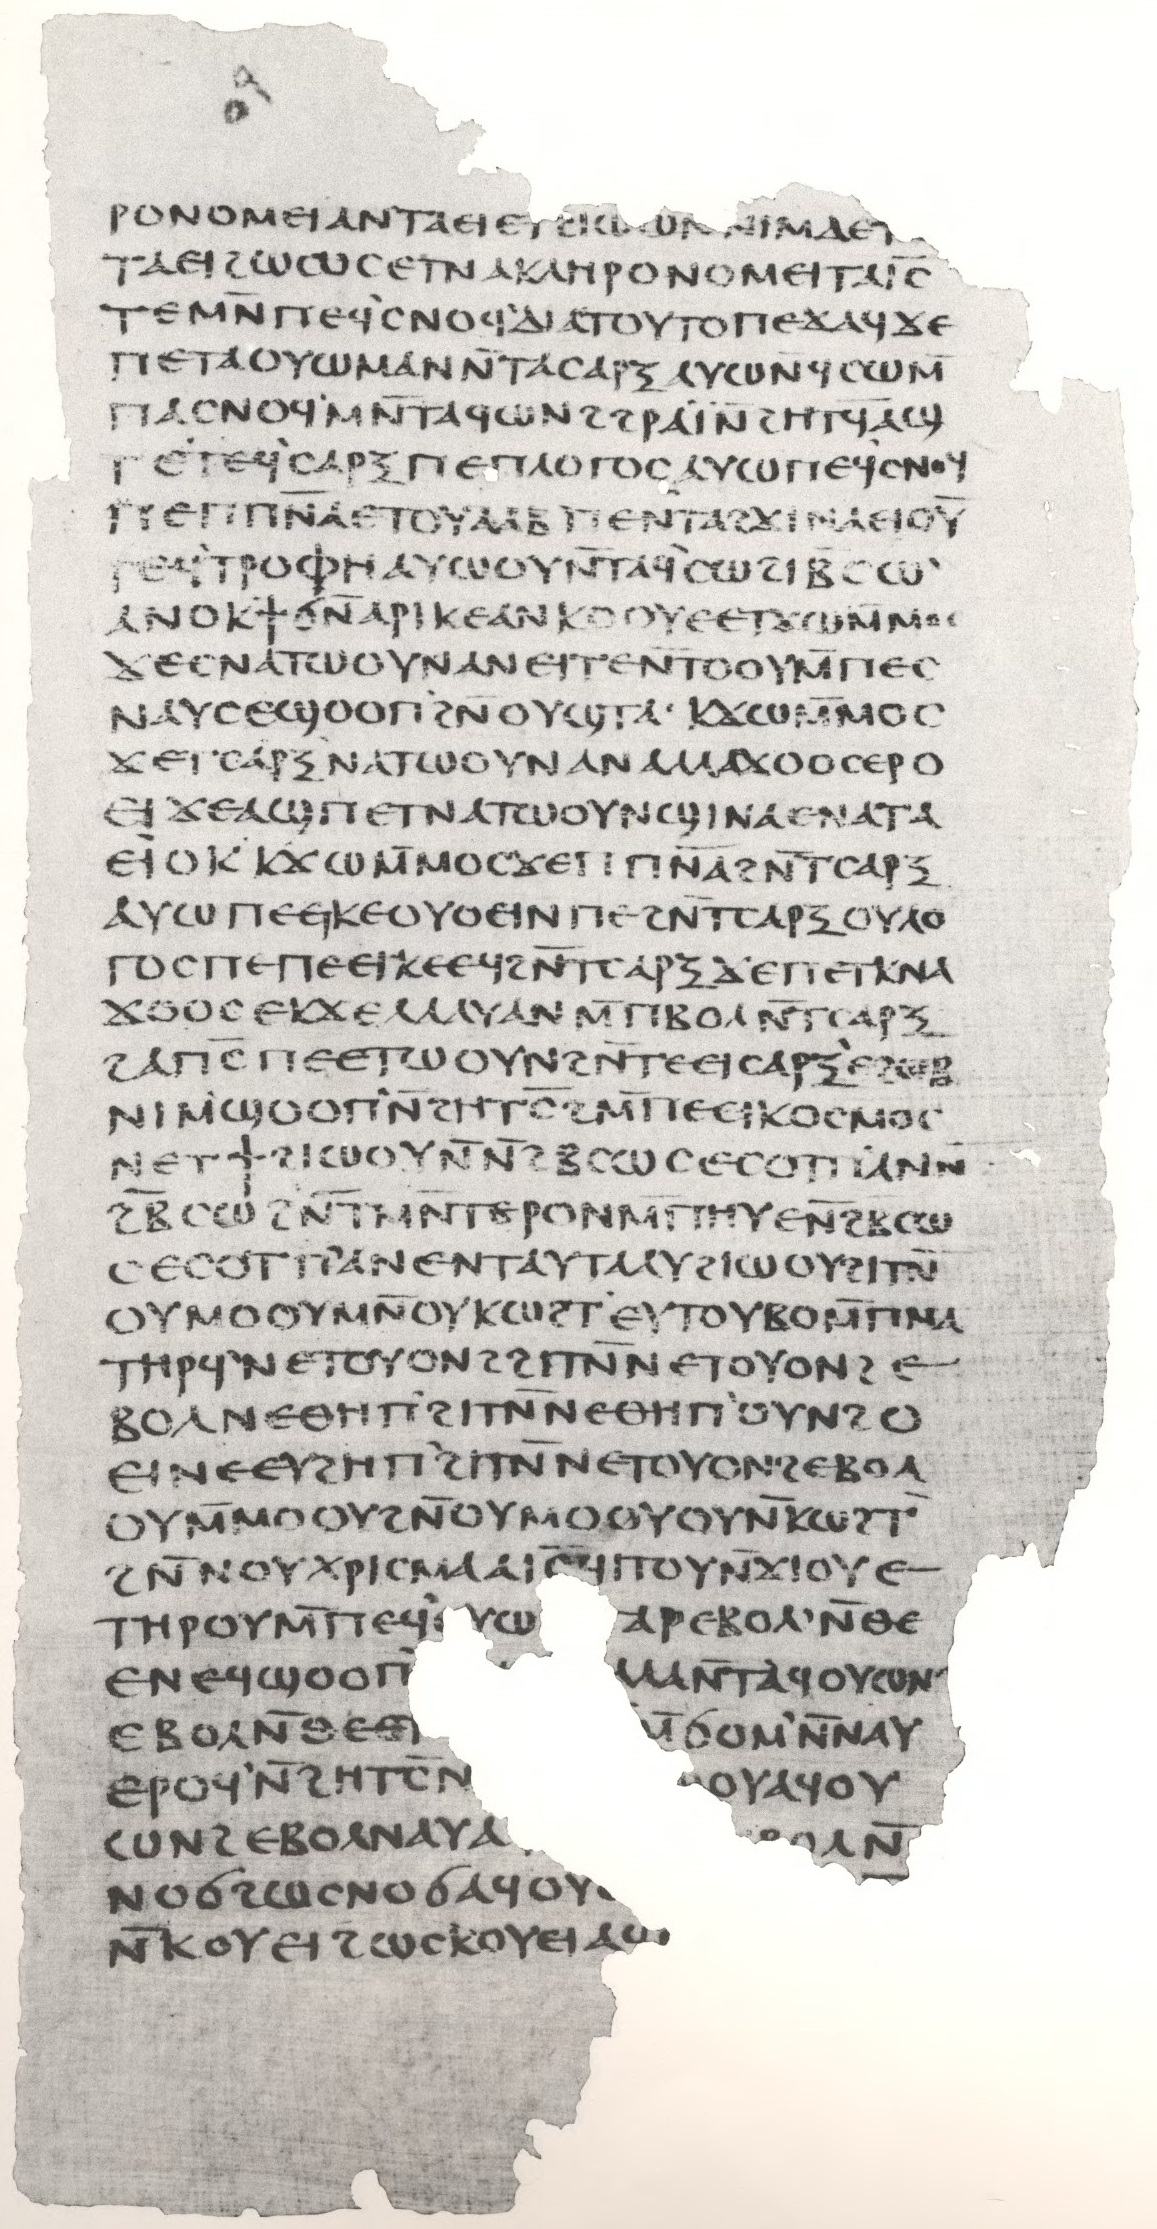 ⲣⲟⲛⲟⲙⲉⲓ ⲁⲛ ⲧⲁⲉⲓ ⲉⲧϩⲓⲱⲱⲛ ⲛⲓⲙ ⲇⲉ ⲧⲉ
ⲧⲁⲉⲓ ϩⲱⲱⲥ ⲉⲧⲛⲁⲕⲗⲏⲣⲟⲛⲟⲙⲉⲓ ⲧⲁ ⲓ̅ⲥ̅
ⲧⲉ ⲙⲛ̅ ⲡⲉϥʼⲥⲛⲟϥʼ ⲇⲓⲁ ⲧⲟⲩⲧⲟ ⲡⲉϫⲁϥ ϫⲉ
ⲡⲉⲧⲁⲟⲩⲱⲙ ⲁⲛ ⲛ̅ⲧⲁⲥⲁⲣⲝ ⲁⲩⲱ ⲛ̅ϥⲥⲱ ⲙ̅
ⲡⲁⲥⲛⲟϥʼ ⲙⲛ̅ⲧⲁϥ ⲱⲛϩ ϩⲣⲁⲓ̈ ⲛ̅ϩⲏⲧϥ̅ ⲁϣ
ⲧⲉ ⲧⲉϥʼⲥⲁⲣⲝ ⲡⲉ ⲡⲗⲟⲅⲟⲥ ⲁⲩⲱ ⲡⲉϥʼⲥⲛⲟϥ
ⲡⲉ ⲡⲡ̅ⲛ̅ⲁ̅ ⲉⲧⲟⲩⲁⲁⲃ ⲡⲉⲛⲧⲁϩϫⲓ ⲛⲁⲉⲓ ⲟⲩⲛ̅
ⲧⲉϥʼⲧⲣⲟⲫⲏ ⲁⲩⲱ ⲟⲩⲛ̅ⲧⲁϥʼ ⲥⲱ ϩⲓ ⲃ̅ⲥⲱ
ⲁⲛⲟⲕ ϯϭⲛ̅ⲁⲣⲓⲕⲉ ⲁⲛⲕⲟⲟⲩⲉ ⲉⲧϫⲱ ⲙ̅ⲙⲟⲥ
ϫⲉ ⲥⲛⲁⲧⲱⲟⲩⲛ ⲁⲛ ⲉⲓⲧⲉ ⲛ̅ⲧⲟⲟⲩ ⲙ̅ⲡⲉⲥ
ⲛⲁⲩ ⲥⲉϣⲟⲟⲡʼ ϩⲛ̅ ⲟⲩϣⲧⲁ· ⲕϫⲱ ⲙ̅ⲙⲟⲥ
ϫⲉ ⲧⲥⲁⲣⲝ ⲛⲁⲧⲱⲟⲩⲛ ⲁⲛ ⲁⲗⲗⲁ ϫⲟⲟⲥ ⲉⲣⲟ
ⲉⲓ ϫⲉ ⲁϣ ⲡⲉⲧⲛⲁⲧⲱⲟⲩⲛ ϣⲓⲛⲁ ⲉⲛⲁⲧⲁ
ⲉⲓⲟⲕ ⲕϫⲱ ⲙ̅ⲙⲟⲥ ϫⲉ ⲡⲡ̅ⲛ̅ⲁ̅ ϩⲛ̅ ⲧⲥⲁⲣⲝ
ⲁⲩⲱ ⲡⲉⲉⲓⲕⲉⲟⲩⲟⲉⲓⲛ ⲡⲉ ϩⲛ̅ ⲧⲥⲁⲣⲝ ⲟⲩⲗⲟ
ⲅⲟⲥ ⲡⲉ ⲡⲉⲉⲓⲕⲉ ⲉϥϩⲛ̅ ⲧⲥⲁⲣⲝ ϫⲉ ⲡⲉⲧⲕⲛⲁ
ϫⲟⲟⲥ ⲉⲕϫⲉ ⲗⲁⲁⲩ ⲁⲛ ⲙ̅ⲡⲃⲟⲗ ⲛ̅ⲧⲥⲁⲣⲝ
ϩⲁⲡⲥ̅ ⲡⲉ ⲉⲧⲱⲟⲩⲛ ϩⲛ̅ ⲧⲉⲉⲓⲥⲁⲣⲝ ⲉϩⲱⲃ
ⲛⲓⲙʼ ϣⲟⲟⲡʼ ⲛ̅ϩⲏⲧⲥ̅ ϩⲙ̅ ⲡⲉⲉⲓⲕⲟⲥⲙⲟⲥ
ⲛⲉⲧϯ ϩⲓⲱⲟⲩ ⲛ̅ⲛ̅ϩⲃ̅ⲥⲱ ⲥⲉⲥⲟⲧⲡʼ ⲁⲛ̅ⲛ̅
ϩⲃ̅ⲥⲱ ϩⲛ̅ ⲧⲙⲛ̅ⲧⲉⲣⲟ ⲛⲙ̅ⲡⲏⲩⲉ ⲛ̅ϩⲃ̅ⲥⲱ
ⲥⲉⲥⲟⲧⲡʼ ⲁⲛⲉⲛⲧⲁⲩⲧⲁⲁⲩ ϩⲓⲱⲟⲩ ϩⲓⲧⲛ̅
ⲟⲩⲙⲟⲟⲩ ⲙⲛ̅ ⲟⲩⲕⲱϩⲧʼ ⲉⲩⲧⲟⲩⲃⲟ ⲙ̅ⲡⲙⲁ
ⲧⲏⲣϥʼ ⲛⲉⲧⲟⲩⲟⲛϩ ϩⲓⲧⲛ̅ ⲛⲉⲧⲟⲩⲟⲛϩ ⲉ
ⲃⲟⲗ ⲛⲉⲑⲏⲡʼ ϩⲓⲧⲛ̅ ⲛⲉⲑⲏⲡʼ ⲟⲩⲛ ϩⲟ
ⲉⲓⲛⲉ ⲉⲩϩⲏⲡʼ ϩⲓⲧⲛ̅ ⲛⲉⲧⲟⲩⲟⲛϩ ⲉⲃⲟⲗ
ⲟⲩⲙ̅ ⲙⲟⲟⲩ ϩⲛ̅ ⲟⲩⲙⲟⲟⲩ ⲟⲩⲛ̅ ⲕⲱϩⲧʼ
ϩⲛ̅ⲛ ⲟⲩⲭⲣⲓⲥⲙⲁ ⲁⲓ̅ⲥ̅ ϥⲓⲧⲟⲩ ⲛ̅ϫⲓⲟⲩⲉ
ⲧⲏⲣⲟⲩ ⲙ̅ⲡⲉϥʼⲟⲩⲱ ⲅⲁⲣ ⲉⲃⲟⲗʼ ⲛ̅ⲑⲉ
ⲉⲛⲉϥϣⲟⲟⲡʼ ⲗⲗⲁ ⲛ̅ⲧⲁϥⲟⲩⲱⲛϩ
ⲉⲃⲟⲗ ⲛ̅ⲑⲉ ⲉⲧ ⲙ̅ϭⲟⲙʼ ⲛ̅ⲛⲁⲩ
ⲉⲣⲟϥʼ ⲛ̅ϩⲏⲧⲥ̅ ⲛ ⲟⲩ ⲁϥⲟⲩ
ⲱⲛϩ ⲉⲃⲟⲗ ⲛⲁⲩ ⲁ ⲃⲟⲗ ⲛ̅
ⲛⲟϭ ϩⲱⲥ ⲛⲟϭ ⲁϥⲟⲩⲱ
ⲛ̅ⲕⲟⲩⲉⲓ ϩⲱⲥ ⲕⲟⲩⲉⲓ ⲁϥ